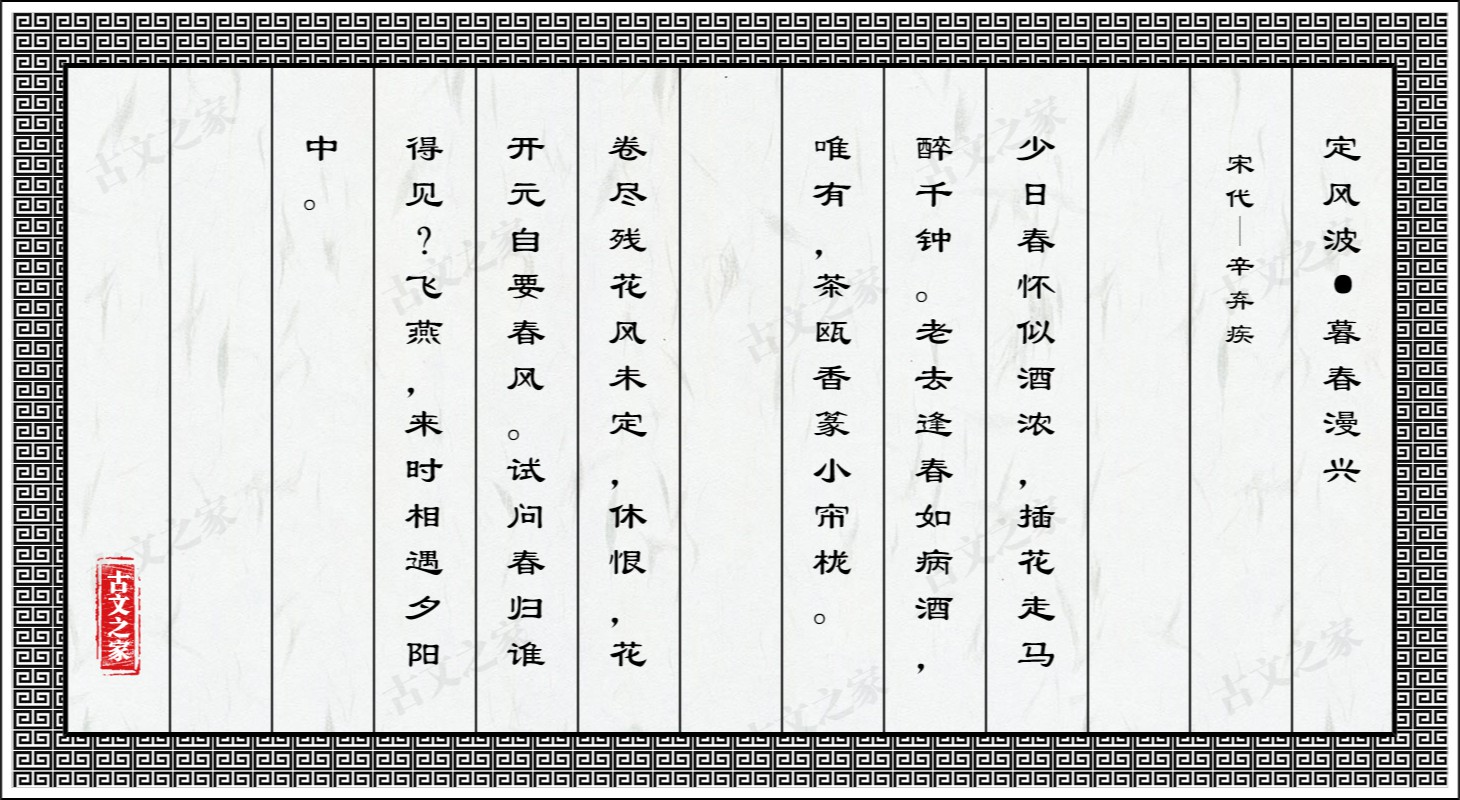 定风波●暮春漫兴
宋代—辛弃疾
少日春怀似酒浓，插花走马
醉千钟。老去逢春如病酒，
唯有，茶瓯香篆小帘栊。
卷尽残花风未定，休恨，花
开元自要春风。试问春归谁
得见？飞燕，来时相遇夕阳
中。
古文之家